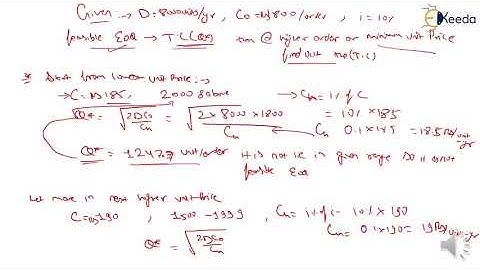 Given :→ D=8000units/yr , Co=Rs1800/order , i=10%
feasible EOQ → T.C(Q*) @ higher order or minimum unit Price
find out the(T.C)
Ekeeda
* Start from lowest unit Price :→
→ C=Rs185, 2000 & above → Cn= i% of C
Q* = √2DCo/Cn = √2×8000×1800/Cn = 10% ×185
Cn 0.1×185 = 18.5 Rs/unit-yr
Q* = 1247.7 unit/order It is not lie in given range so it is not
feasible EOQ
Let move in next higher unit Price
C=Rs190 , 1500-1999 , Cn= i% of C- 10% × 190
Cn= 0.1×190= 19 Rs/unit-yr
Q* = √2DCo/Cn